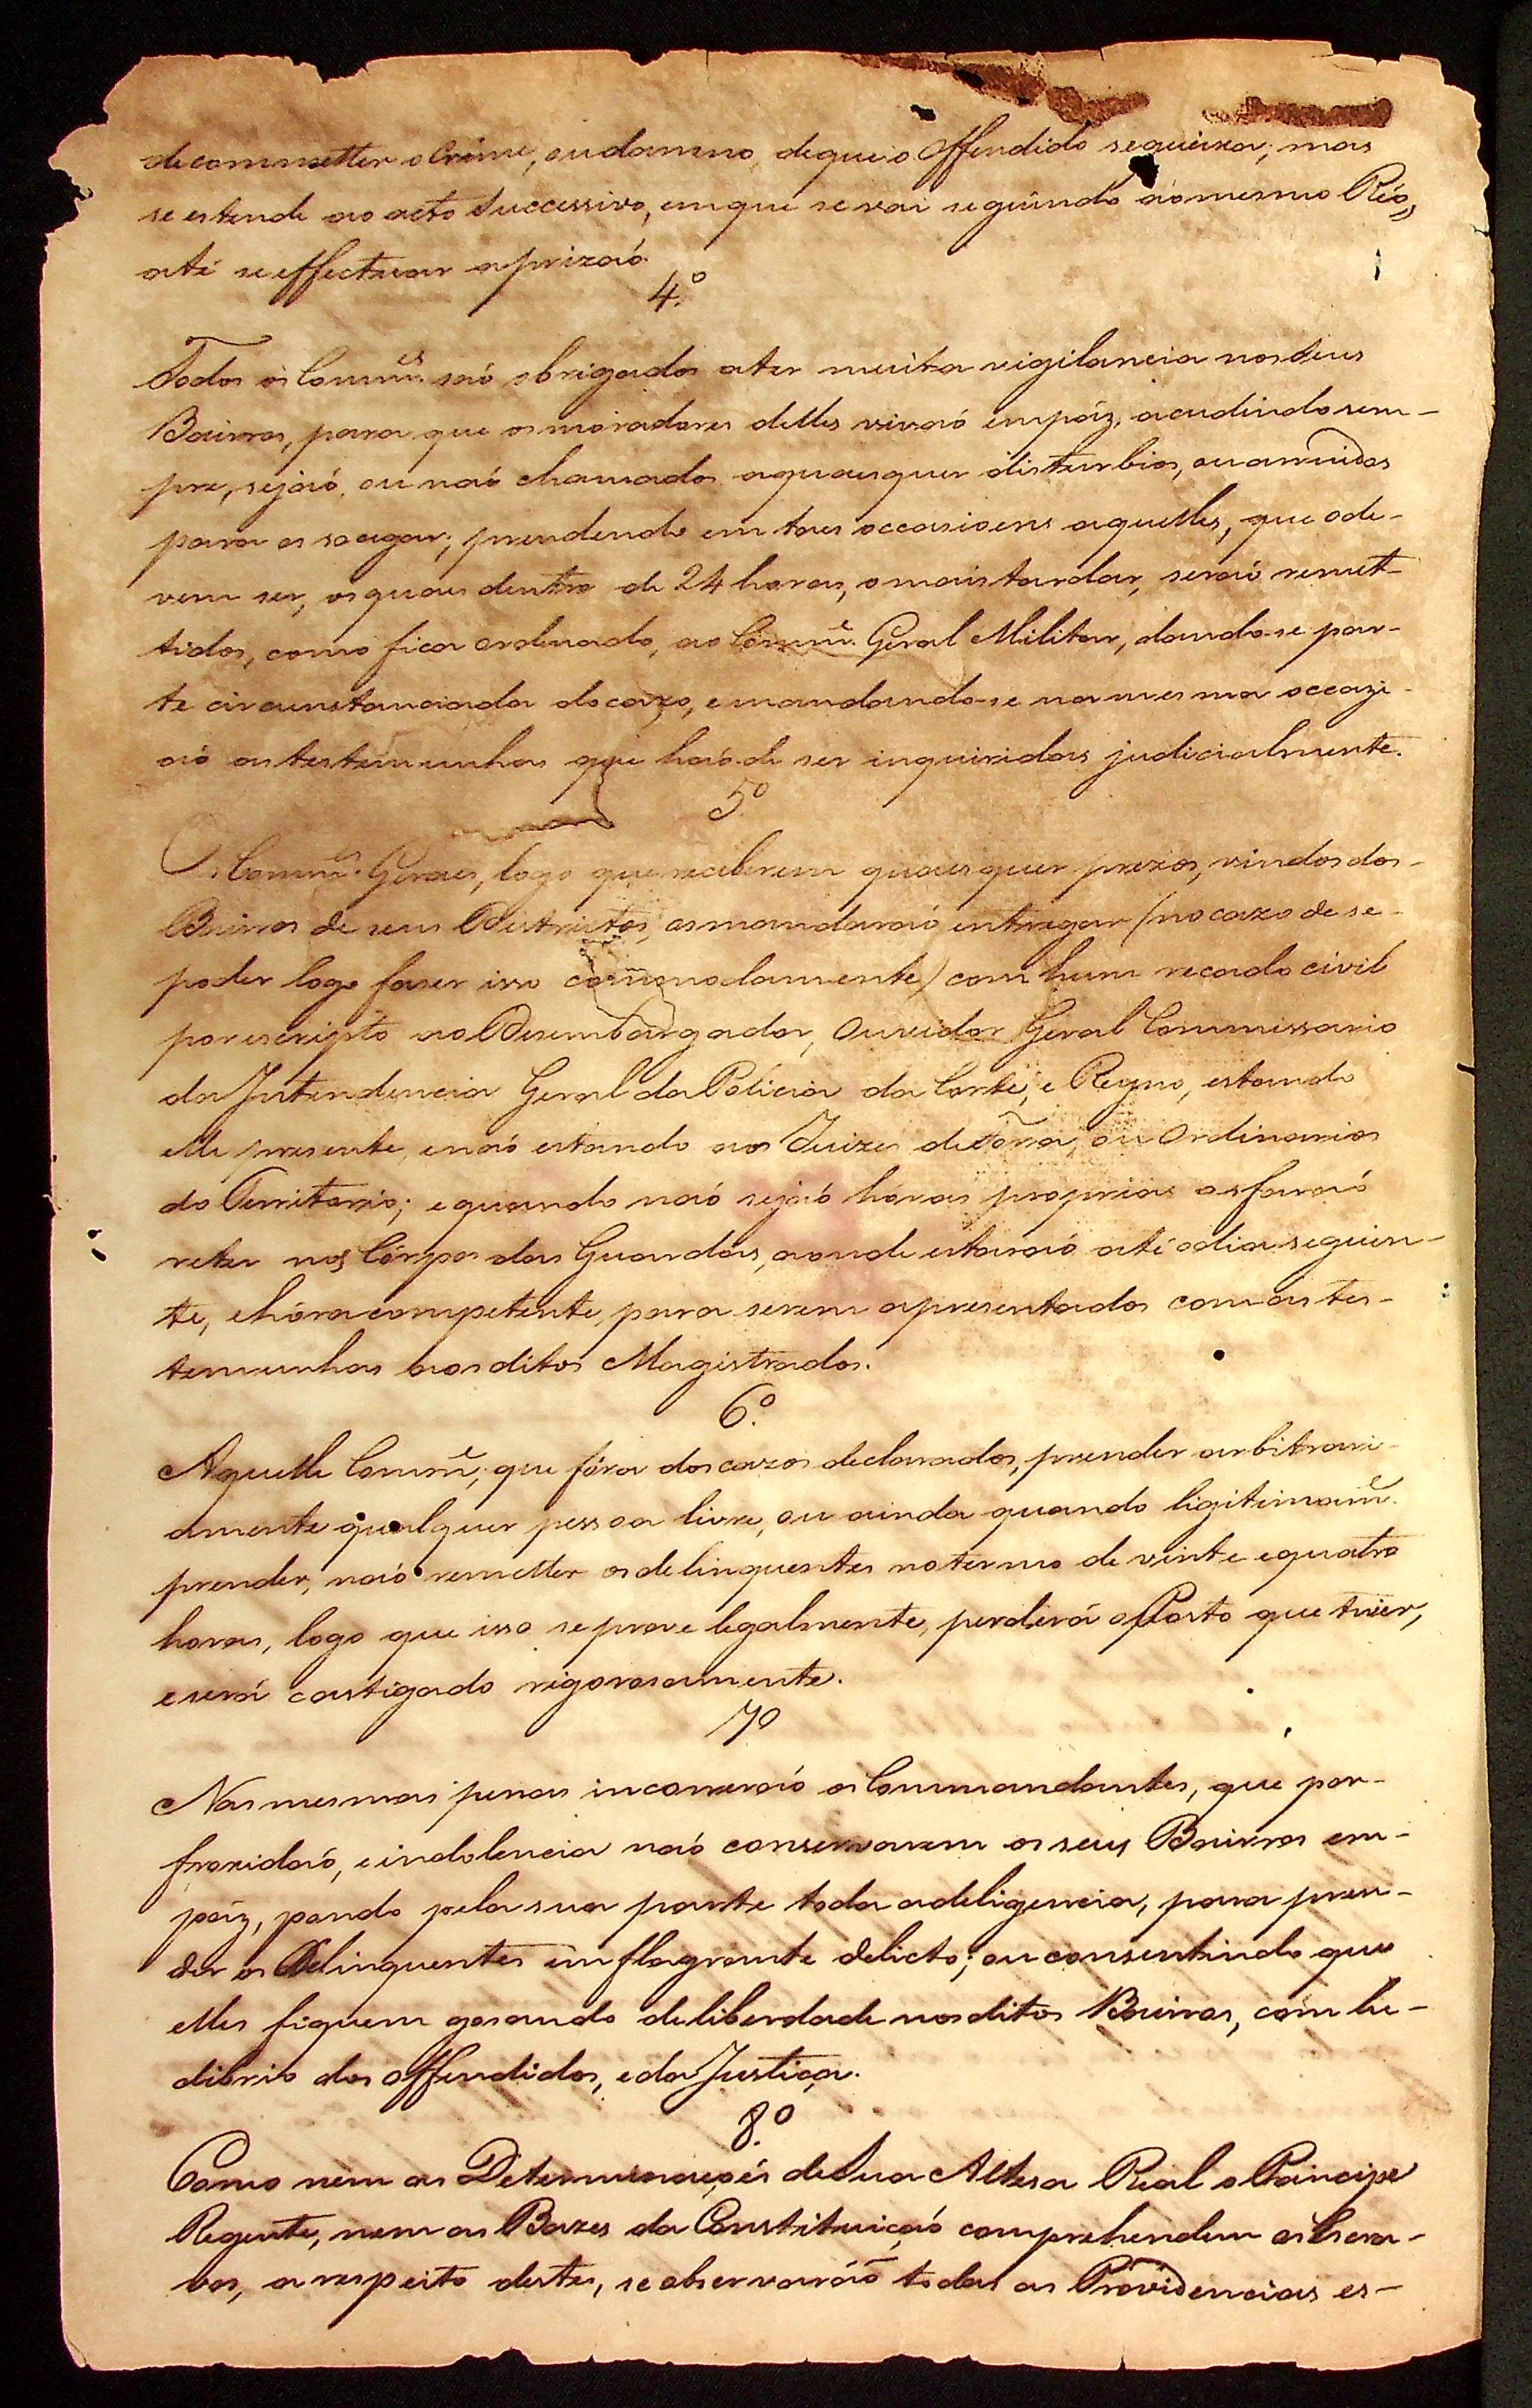 de commetter o Crime, ou damno, de que o Offendido se queixa; mas
se estende ao acto Successivo, em que se vai seguindo ao mesmo Réo,
até se effectuar a prizaõ.
4.º
Todos os Comm.es saõ obrigados a ter muita vigilancia nos seus
Bairros, para que os moradores delles vivaõ em páz, acudindo sem-
pre, sejaõ, ou naõ chamados a quaesquer disturbios, ou arruidos
para os socegar; prendendo em taes occasioens aquelles, que o de-
vem ser, os quaes dentro de 24 horas, o mais tardar, seraõ remet-
tidos, como fica ordenado, ao Comm.e Geral Militar, dando-se par-
te circunstanciada do cazo, e mandando-se na mesma occazi-
aõ as testemunhas que haõ de ser inquiridas judicialmente.
5º
Os Comm.es Geraes, logo que receberem quaesquer prezos, vindos dos
Bairros de seus Districtos, os mandaraõ entregar (no cazo de se
poder logo faser isso commodamente) com hum recado civil
por escripto ao Desembargador, Ouvidor Geral Commissario
da Intendencia Geral da Policia da Corte, e Reyno, estando
elle presente, e naõ estando aos Juizes de Fóra, ou Ordinarios
do Territorio; e quando naõ sejaõ hóras proprias os faraõ
reter nos Córpos das Guardas, aonde estaraõ até o dia seguin-
te, e hóra competente, para serem apresentados com as tes-
temunhas aos ditos Magistrados.
6.º
Aquelle Comm.e, que fóra dos cazos declarados, prender arbitrari-
amente qualquer pessoa livre, ou ainda quando ligitimam.e
prender, naõ remetter os delinquentes no termo de vinte e quatro
horas, logo que isso se prove legalmente, perderá o Posto que tiver,
e será castigado rigorosamente.
7º
Nas mesmas penas incorreraõ os Commandantes, que por
froxidaõ, e indolencia naõ conservarem os seus Bairros em
páz, pondo pela sua parte toda a deligencia, para pren-
der os Delinquentes em flagrante delicto; ou consentindo que
elles fiquem gosando de liberdade nos ditos Bairros, com lu-
dibrio dos offendidos, e da Justiça.
8.º
Como nem as Determinaçoés de Sua Altesa Real o Principe
Regente, nem as Bazes da Constituiçaõ comprehendem os Escra-
vos, a respeito destes, se observaráõ todas as Providencias es-